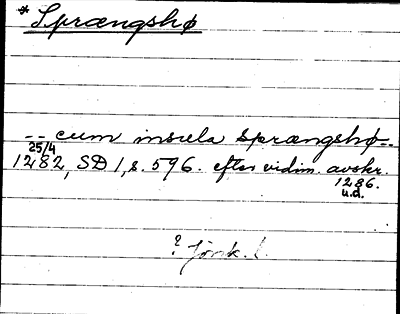 * Sprængshø
-- cum insula Sprængshø--
25/4
1282, SD 1, s. 596. efter vidim. avskr.
1286.
u.d.
? Jönk. l.